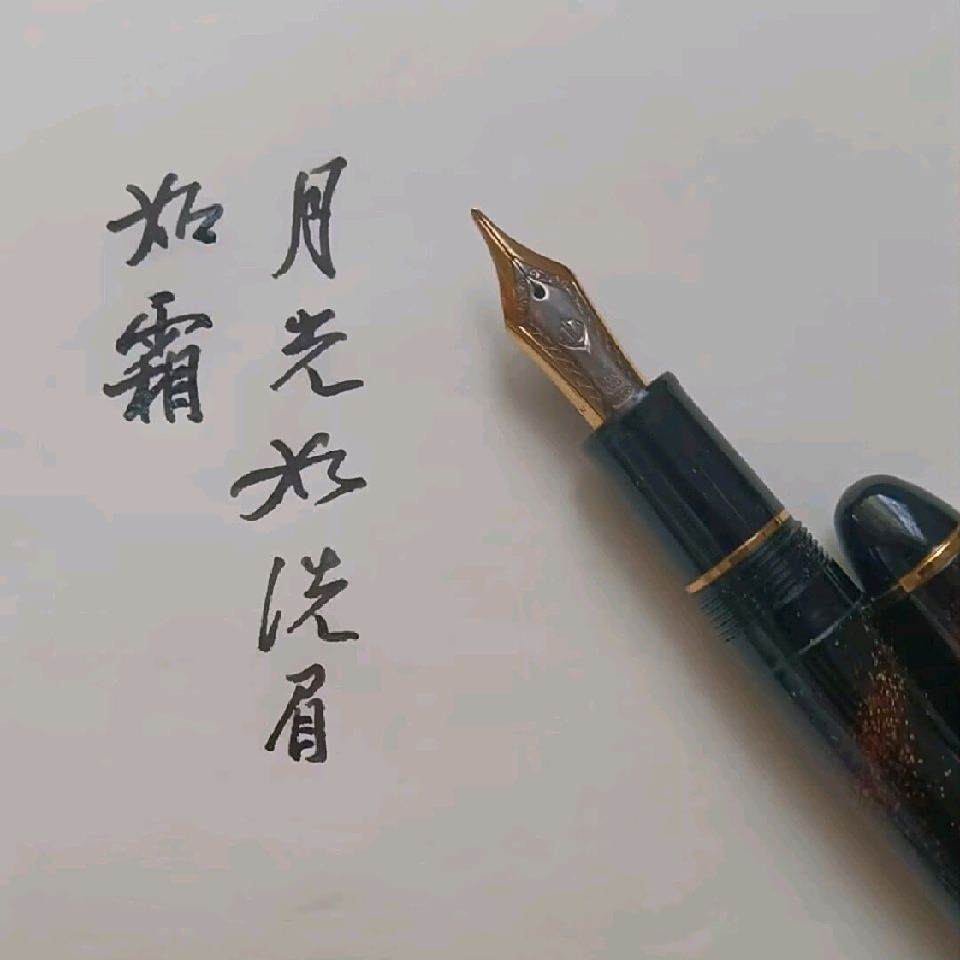 月光如洗眉
如霜